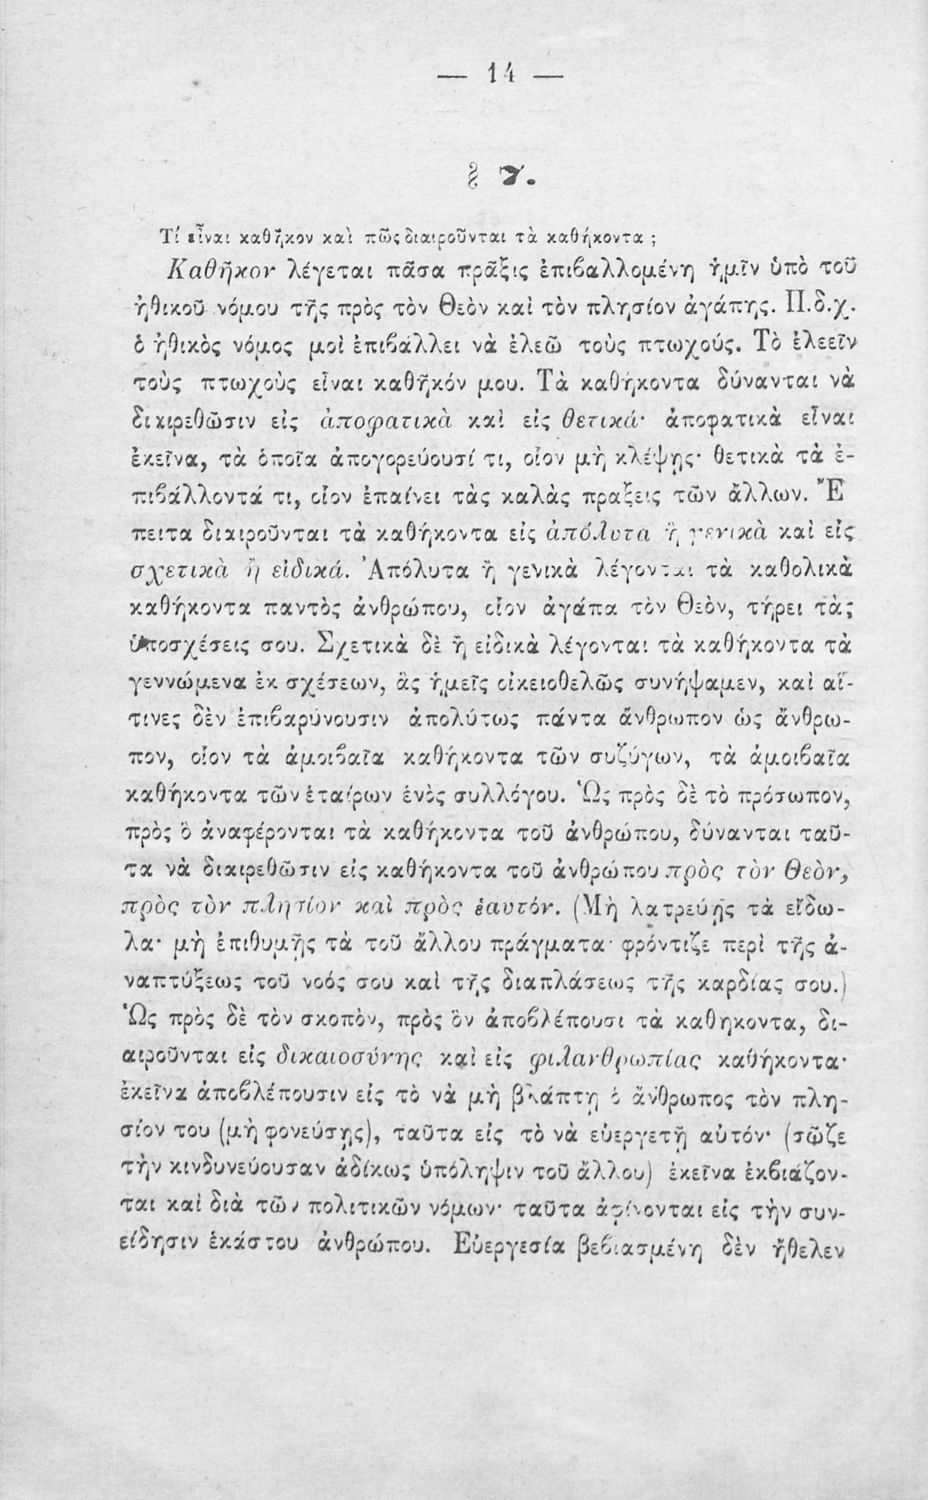 — 14 —
§ 7.
Τί εἶναι καθῆκον καὶ πῶς διαιροῦνται τὰ καθήκοντα ;
Καθῆκον λέγεται πᾶσα πρᾶξις ἐπιβαλλομένη ἡμῖν ὑπὸ τοῦ
ἠθικοῦ νόμου τῆς πρὸς τὸν Θεὸν καὶ τὸν πλησίον ἀγάπης. Π.δ.χ.
ὁ ἠθικὸς νόμος μοὶ ἐπιβάλλει νὰ ἐλεῶ τοὺς πτωχούς. Τὸ ἐλεεῖν
τοὺς πτωχοὺς εἶναι καθῆκόν μου. Τὰ καθήκοντα δύνανται νὰ
διαιρεθῶσιν εἰς ἀποφατικὰ καὶ εἰς θετικά· ἀποφατικὰ εἶναι
ἐκεῖνα, τὰ ὁποῖα ἀπαγορεύουσί τι, οἷον μὴ κλέψῃς· θετικὰ τὰ ἐ-
πιβάλλοντά τι, οἷον ἐπαίνει τὰς καλὰς πράξεις τῶν ἄλλων. Ἔ
πειτα διαιροῦνται τὰ καθήκοντα εἰς ἀπόλυτα ἢ γενικὰ καὶ εἰς
σχετικὰ ἢ εἰδικά. Ἀπόλυτα ἢ γενικὰ λέγονται τὰ καθολικὰ
καθήκοντα παντὸς ἀνθρώπου, οἷον ἀγάπα τὸν Θεὸν, τήρει τὰς
ὑποσχέσεις σου. Σχετικὰ δὲ ἢ εἰδικὰ λέγονται τὰ καθήκοντα τὰ
γεννώμενα ἐκ σχέσεων, ἃς ἡμεῖς οἰκειοθελῶς συνήψαμεν, καὶ αἵ-
τινες δὲν ἐπιβαρύνουσιν ἀπολύτως πάντα ἄνθρωπον ὡς ἄνθρω-
πον, οἷον τὰ ἀμοιβαῖα καθήκοντα τῶν συζύγων, τὰ ἀμοιβαῖα
καθήκοντα τῶν ἑταίρων ἑνὸς συλλόγου. Ὡς πρὸς δὲ τὸ πρόσωπον,
πρὸς ὃ ἀναφέρονται τὰ καθήκοντα τοῦ ἀνθρώπου, δύνανται ταῦ-
τα νὰ διαιρεθῶσιν εἰς καθήκοντα τοῦ ἀνθρώπου πρὸς τὸν Θεὸν,
πρὸς τὸν πλησίον καὶ πρὸς ἑαυτόν. (Μὴ λατρεύῃς τὰ εἴδω-
λα· μὴ ἐπιθυμῇς τὰ τοῦ ἄλλου πράγματα· φρόντιζε περὶ τῆς ἀ-
ναπτύξεως τοῦ νοός σου καὶ τῆς διαπλάσεως τῆς καρδίας σου.)
Ὡς πρὸς δὲ τὸν σκοπὸν, πρὸς ὃν ἀποβλέπουσι τὰ καθηκοντα, δι-
αιροῦνται εἰς δικαιοσύνης καὶ εἰς φιλανθρωπίας καθήκοντα·
ἐκεῖνα ἀποβλέπουσιν εἰς τὸ νὰ μὴ βλάπτῃ ὁ ἄνθρωπος τὸν πλη-
σίον του (μὴ φονεύσῃς), ταῦτα εἰς τὸ νὰ εὐεργετῇ αὐτόν· (σῶζε
τὴν κινδυνεύουσαν ἀδίκως ὑπόληψιν τοῦ ἄλλου) ἐκεῖνα ἐκβιάζον-
ται καὶ διὰ τῶν πολιτικῶν νόμων· ταῦτα ἀφίνονται εἰς τὴν συν-
είδησιν ἑκάστου ἀνθρώπου. Εὐεργεσία βεβιασμένη δὲν ἤθελεν